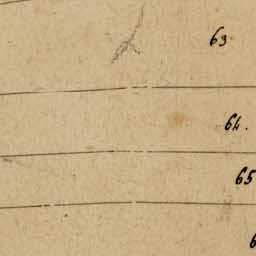 63
64.
65
6